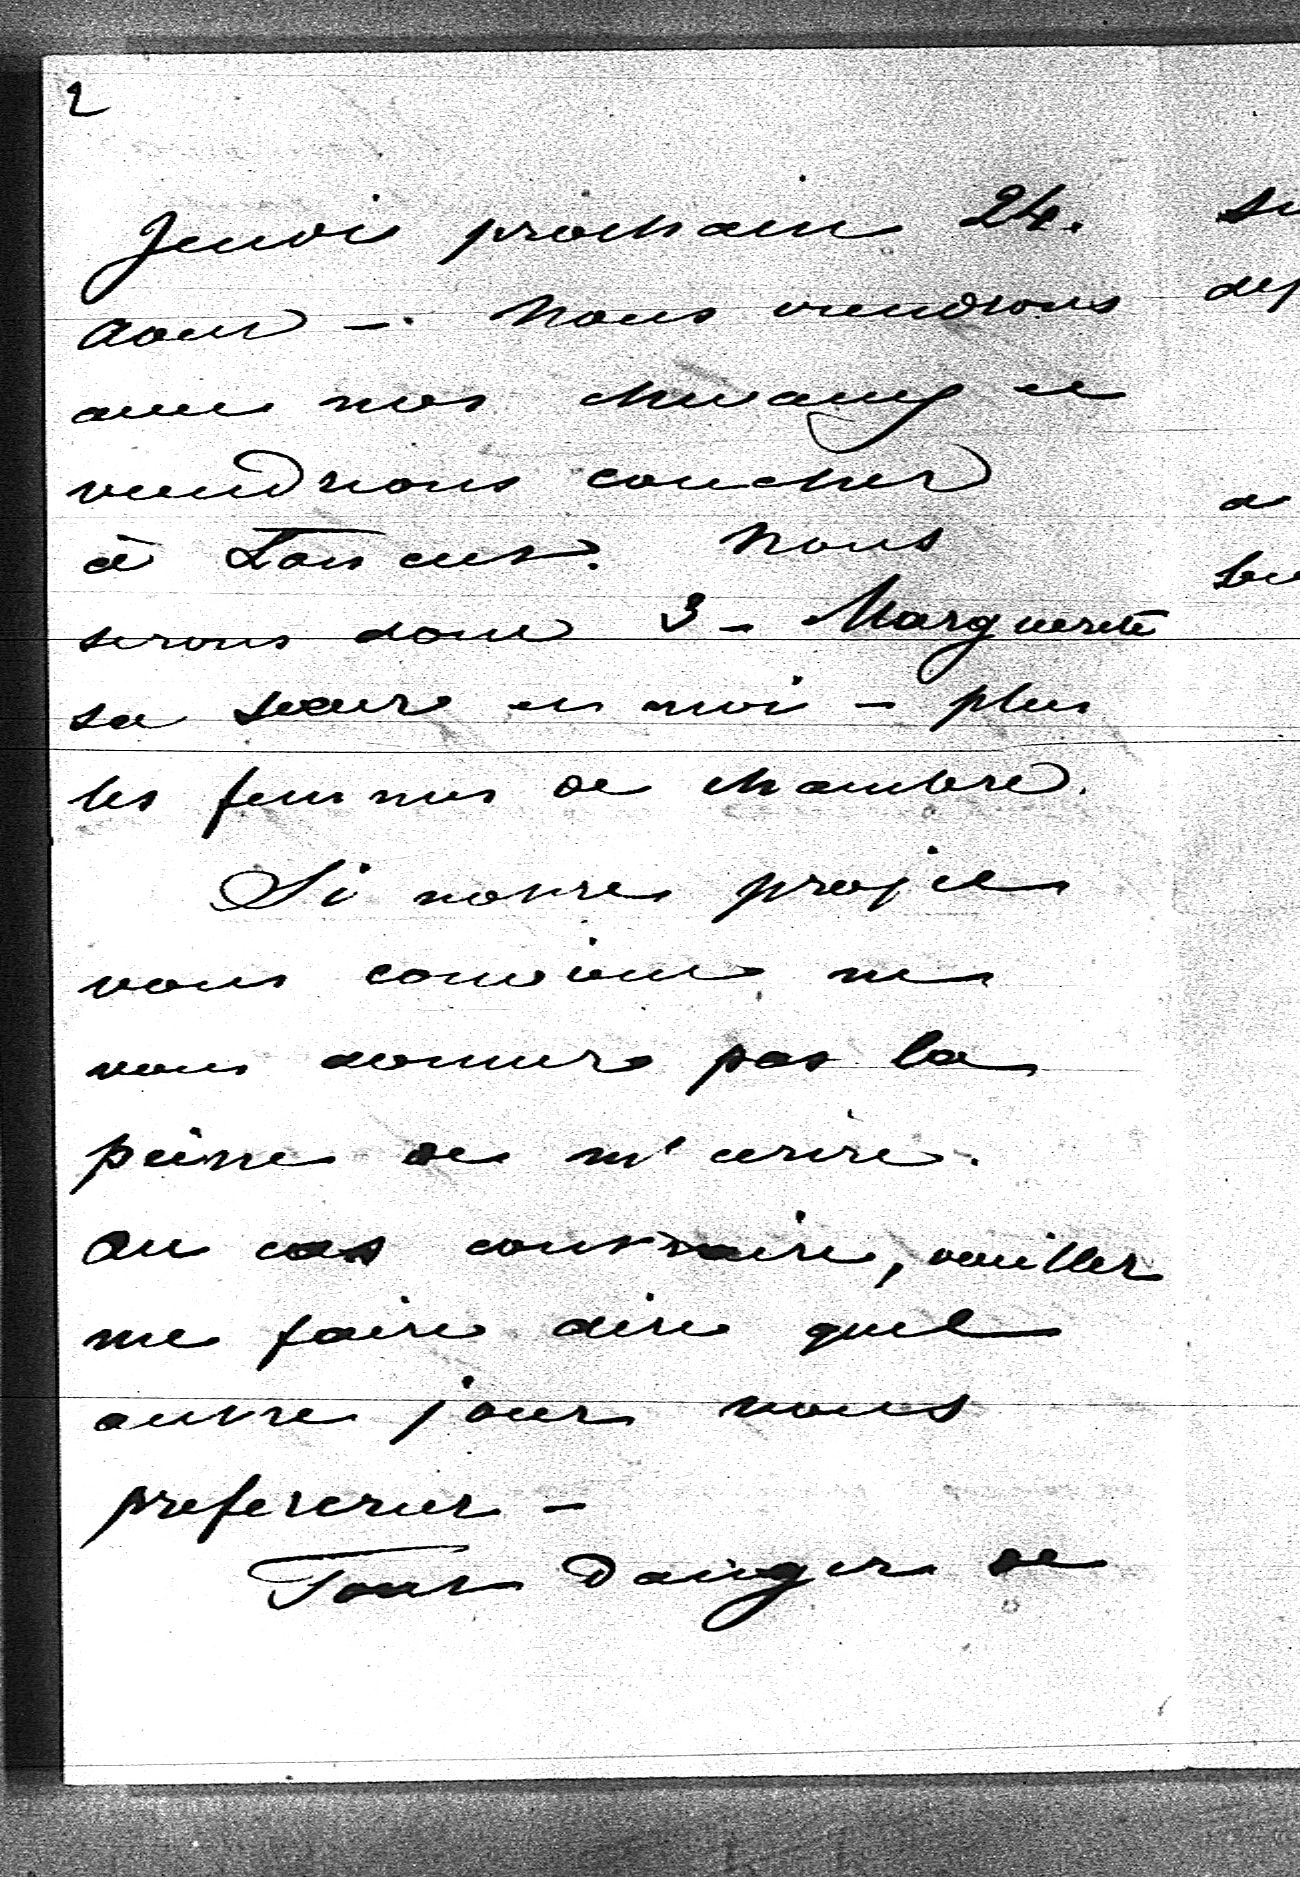 2
Jeudi prochain 24.
aout -. Nous viendrons
avec nos chevaux et
viendrions coucher
à
Nous
serons donc 3 - Marguerite
sa soeur et moi - plus
les femmes de chambre.
Si notre projet
vous convient ne
vous donnez pas la
peine de m'ecrire.
au cas contraire, veuillez
me faire dire quel
autre jour vous
prefereriez -
Tout danger de